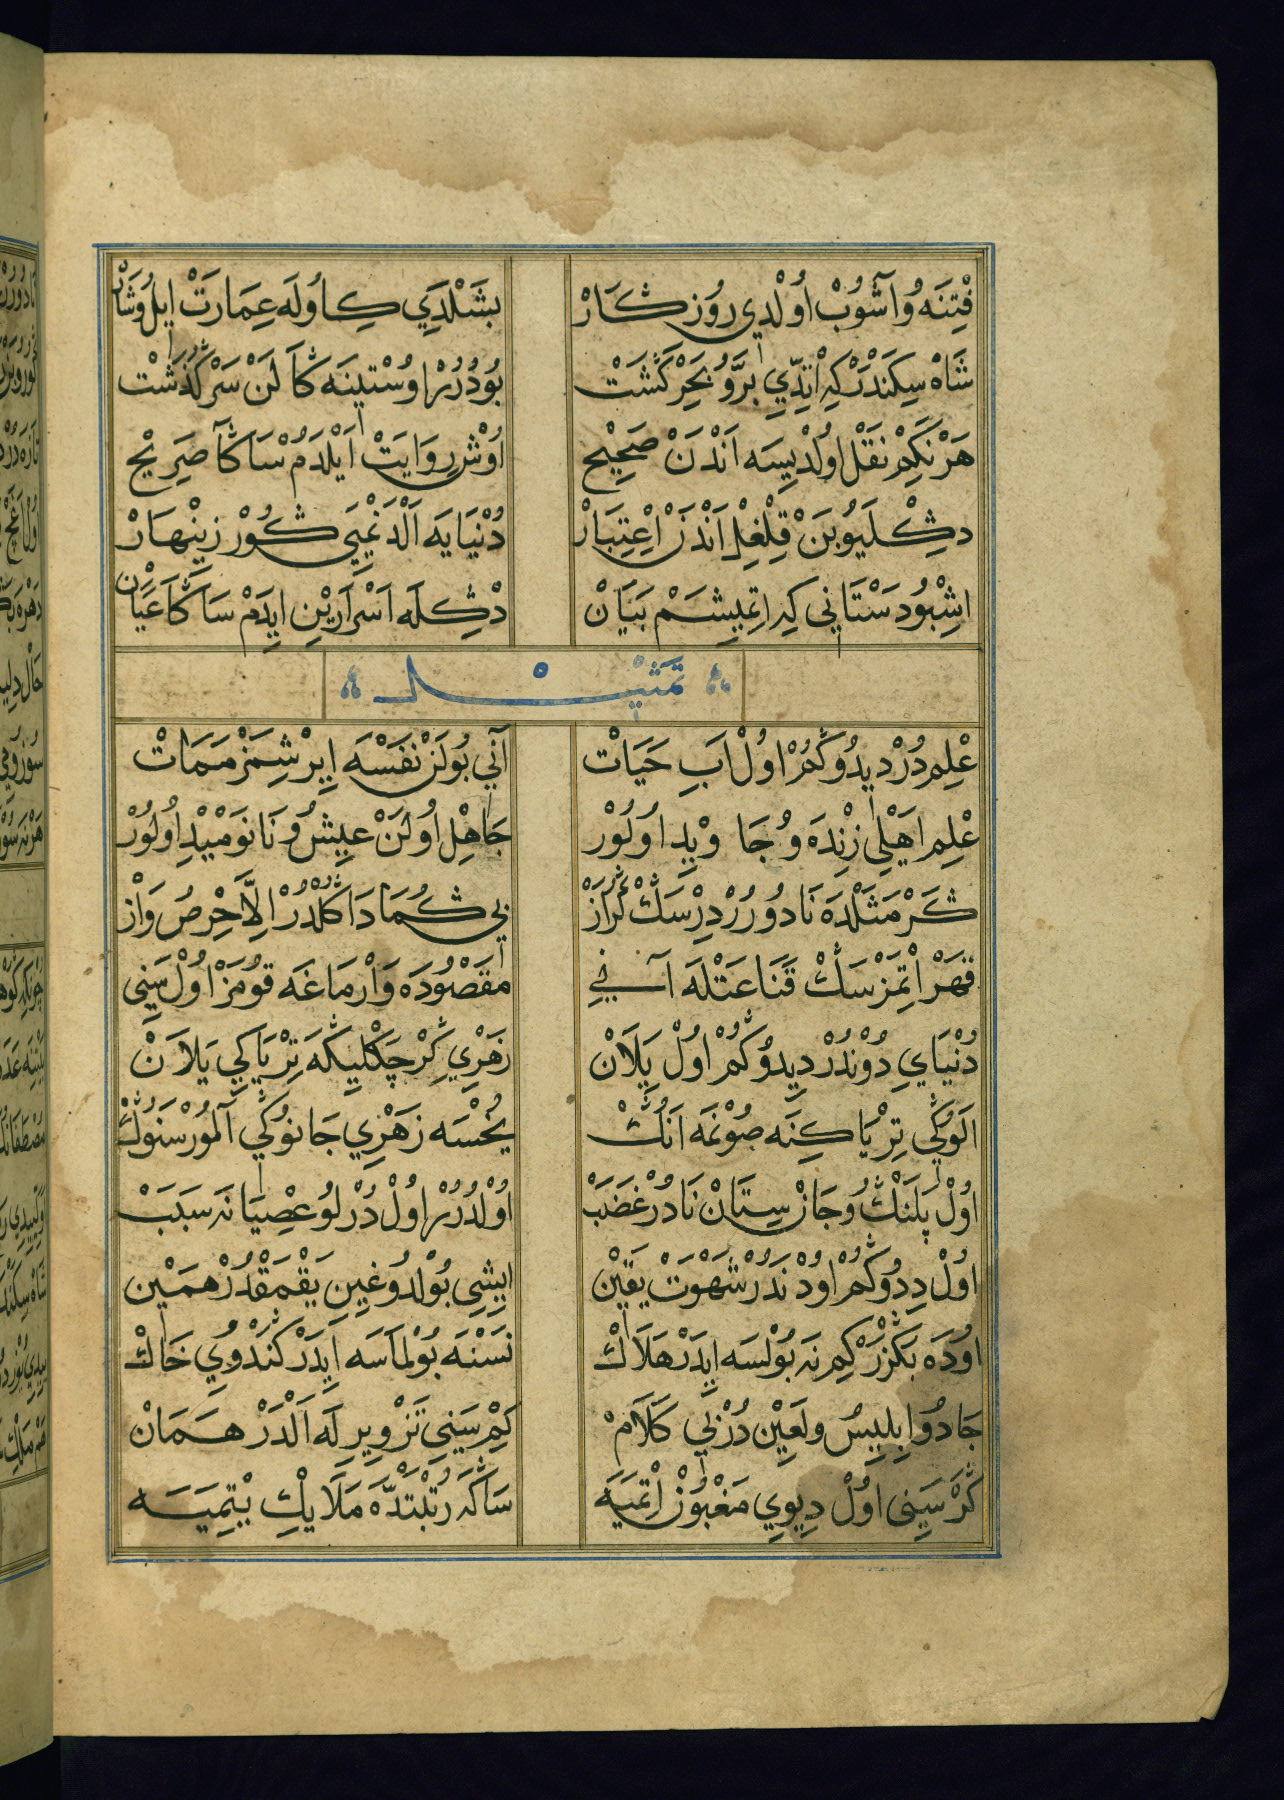 فِتْنَه وُ آشُوبْ اُولْدِي رُوزگَارْ بَشْلَدِي كِه اُولَه عِمَارَتْ
شَاهْ سِكَنْدَرْ كِه اتْدِي بَرّ وُ بَحْرْ گَشْتْ بُودُرُرْ اُوسْتِينَه كَالَنْ سَرْگُذَشْتْ
هَرْ نَكِمْ نَقْل اُولْدِيسَه اَنْدَنْ صَحِيحْ اُوشْ رِوَايَتْ اَيْلَدُمْ سَاكَا صَرِيحْ
دِكْلَيُوبَنْ قِلْغِلْ اَنْدَنْ اِعْتِبَارْ دُنْيَايَه اَلْدَنْمَغِي كُورْ زِينْهَارْ
اِشْبُو دَسْتَانِي كِه اتْمِيشَمْ بَيَانْ دِكْلَه اَسْرَارِينْ ايدَمْ سَاكَا عَيَانْ
تَمْثِيلْ
عِلْمِدُرْ دِيدُوكُمْ اُولْ آبِ حَيَاتْ آنِي بُولَنْ نَفْسَه اِيرِشْمَزْ مَمَاتْ
عِلْم اَهْلِي زِنْدَه وُ جَاوِيد اُولُورْ جَاهِل اُولَنْ عِيشُ وُ نَا نَوْمِيد اُولُورْ
كَرْ مَثَلْدَه نَادُورُرْ دِرْسَكْ كُرَازْ بِي كُمَادَا كُلْدُرْ اِلَّا حِرْصُ وُ آزْ
قَهْرْ اتْمَزْسَكْ قَنَاعَتْلَه آنِي مَقْصُودَه وَارْمَاغَه قُومَزْ اُولْ سَنِي
دُنْيَايِ دُونْدُرْ دِيدُوكُمْ اُولْ يِلَانْ زَهْرِي كِرْچَكْلِيكَه تِرْيَاكِي يَلَانْ
اَلَوُكِي تِرْيَاكِنَه صُونْمَه اَنُكْ يُخْسَه زَهْرِي جَانُوكِي آلُورْ سَنُوكْ
اُولْ پَلَنْكْ وُ جَازْسِتَانْ نَادُرْ غَضَبْ اُولْدُرُرْ اُولْ دُرْلُو عِصْيَانَه سَبَبْ
اُولْ دِدُوكُمْ اُودْ نَدُرْ شَهْوَتْ يَقِينْ اِيشِي بُولْدُوغِينِ يَقْمَقْدُرْ هَمِينْ
اُودَه بَكْزَرْ كِمْ نَه بُولْسَه ايدَرْ هَلَاكْ نَسْنَه بُولْمَاسَه ايدَرْ كَنْدُويِ خَاكْ
جَادُو اِبْلِيسُ وُ لَعِينْدُرْ بِي كَلَامْ كِمْ سَنِي تَزْوِيرِ لَه اَلْدَرْ هَمَانْ
كَرْ سَنِي اُولْ دِيوِي مَغْبُونْ اِتْمَيَه سَاكَه رُتْبَتْدَه مَلَايِكْ يَتْمَيَه